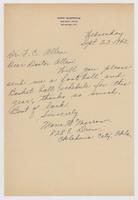 Wednesday
Sept 23 1942
Dr. F. C. Allen
Dear Doctor Allen
Will you please
send me a foot ball and
Basket ball schedule for this
year, thanks so much.
Best of luck
Sincerely
828 E. Drive
Oklahoma City, Okla.